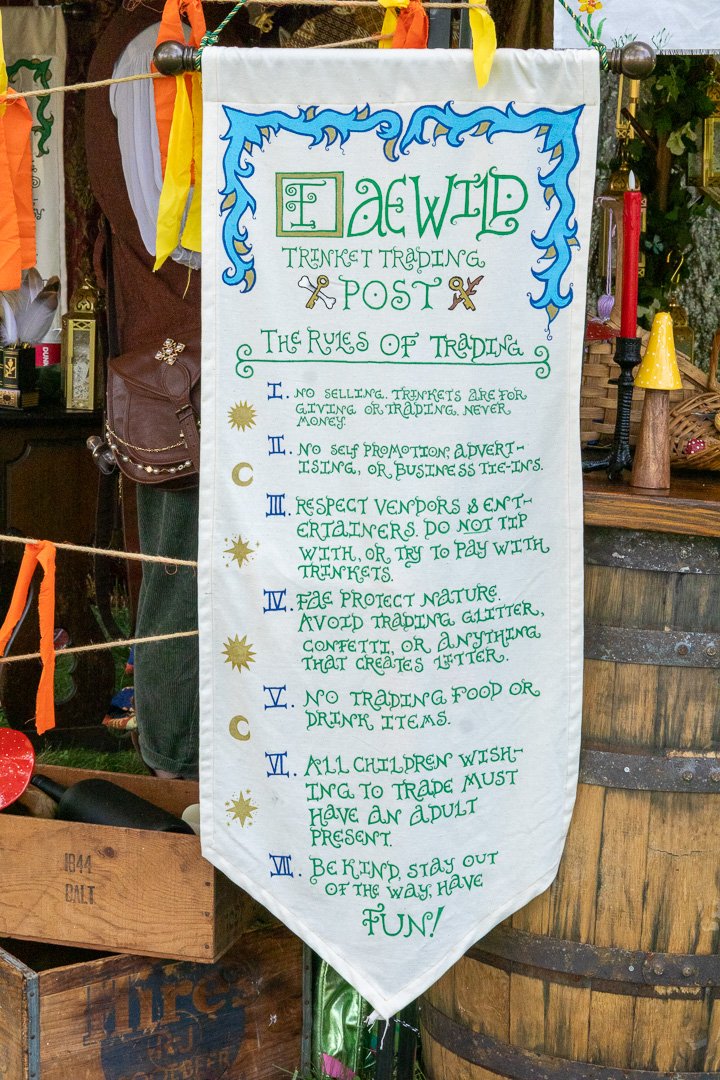 FAEWILD
TRINKET TRADING
POST
THE RULES OF TRADING
I. NO SELLING. TRINKETS ARE FOR
GIVING OR TRADING. NEVER
MONEY.
II. NO SELF PROMOTION, ADVERT-
ISING, OR BUSINESS TIE-INS.
III. RESPECT VENDORS & ENT-
ERTAINERS. DO NOT TIP
WITH, OR TRY TO PAY WITH
TRINKETS.
IV. FAE PROTECT NATURE.
AVOID TRADING GLITTER,
CONFETTI, OR ANYTHING
THAT CREATES LITTER.
V. NO TRADING FOOD OR
DRINK ITEMS.
VI. ALL CHILDREN WISH-
ING TO TRADE MUST
HAVE AN ADULT
PRESENT.
VII. BE KIND, STAY OUT
OF THE WAY, HAVE
FUN!
1844
BALT